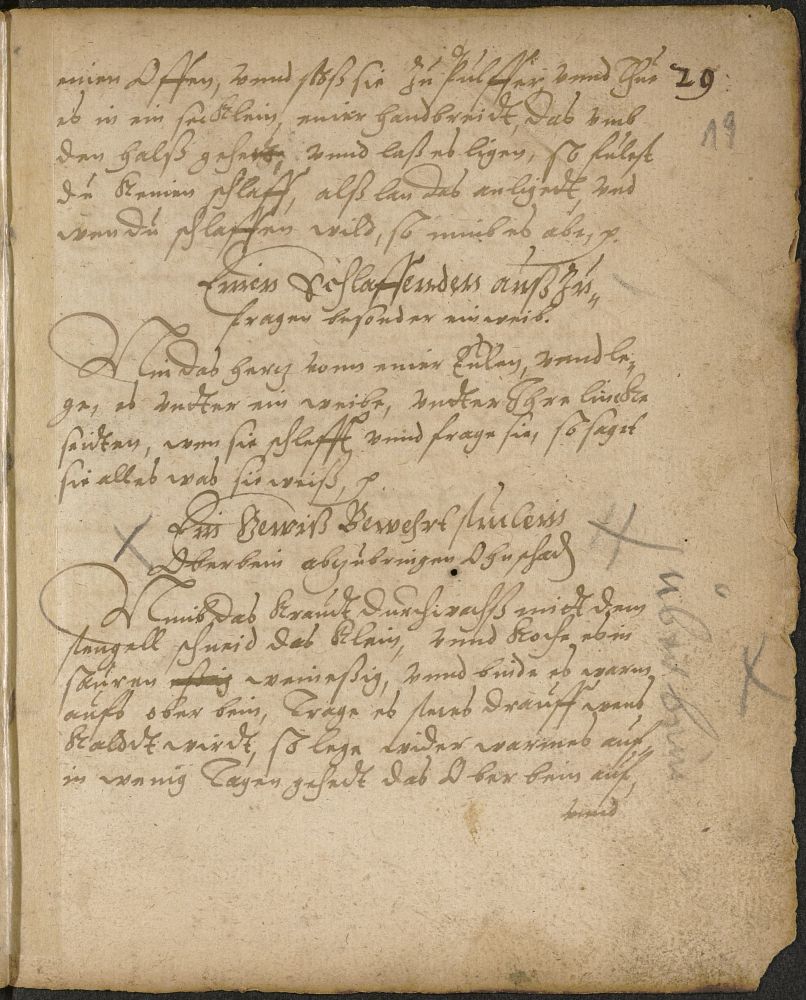 einen Offen, vnnd stoß sie zu Pulffer, vnnd Thue 29
es in ein secklein, einer handbreidt, das vmb 19
den halß gehe, vnnd laß es ligen, so fülest
du keinen schlaff, alß lan das anligedt, vnd
wen du schlaffen wild, so nimb es abe, p.
Einen Schlaffenden auß Zu„
fragen besonder ein weib.
Nim das hertz vonn einer Eulen, vnnd le„
ge, es vndter ein weibe, vndter Ihre lincke
seidten, wen sie schlefft vnnd frage sie, so saget
sie alles was sie weiß, p
Ein Gewiß Bewehrt stuclein
Oberbein abzubringen Ohn schad
Nimb das Kraudt durchwachß mitt dem
stengell schneid das klein, vnnd koche es in
sauren weinessig, vnnd binde es warm
aufs ober bein, Trage es stetes drauff wens
kalddt wirdt, so lege wider warmes auf,
in wenig Tagen gehedt das Ober bein auf,
vnnd
überbein